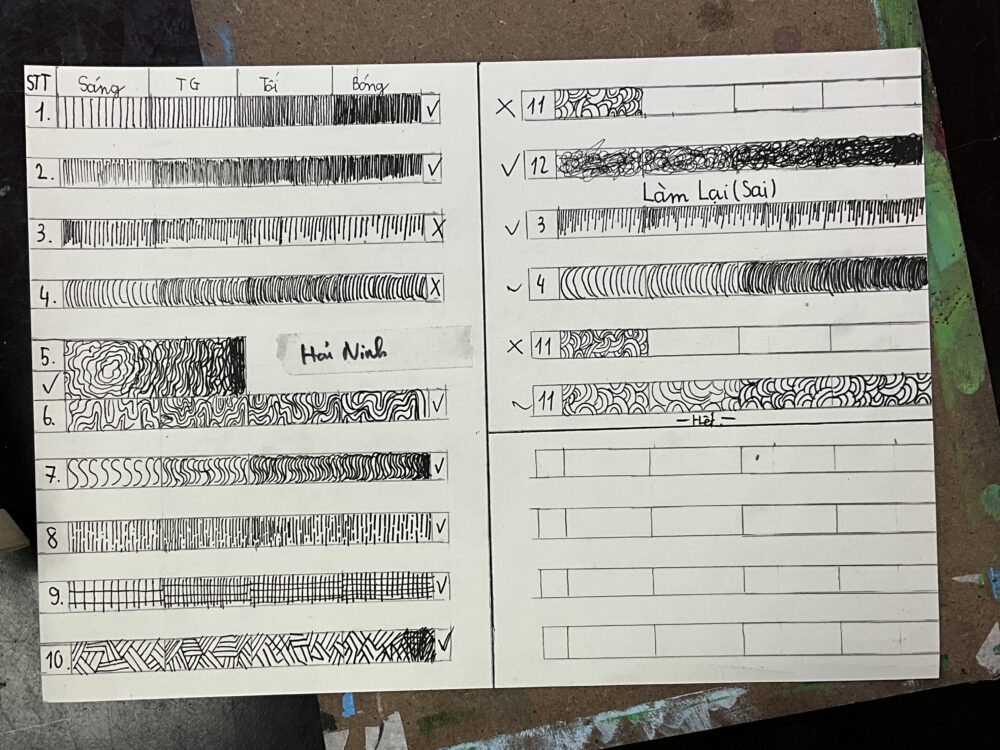 STT Sáng TG Tối Bóng
1. ✓
2. ✓
3. X
4. X
5. ✓
Hải Ninh
6. ✓
7. ✓
8 ✓
9. ✓
10. ✓
X 11
✓ 12
Làm Lại (Sai)
✓ 3
✓ 4
X 11
✓ 11
— Hết —